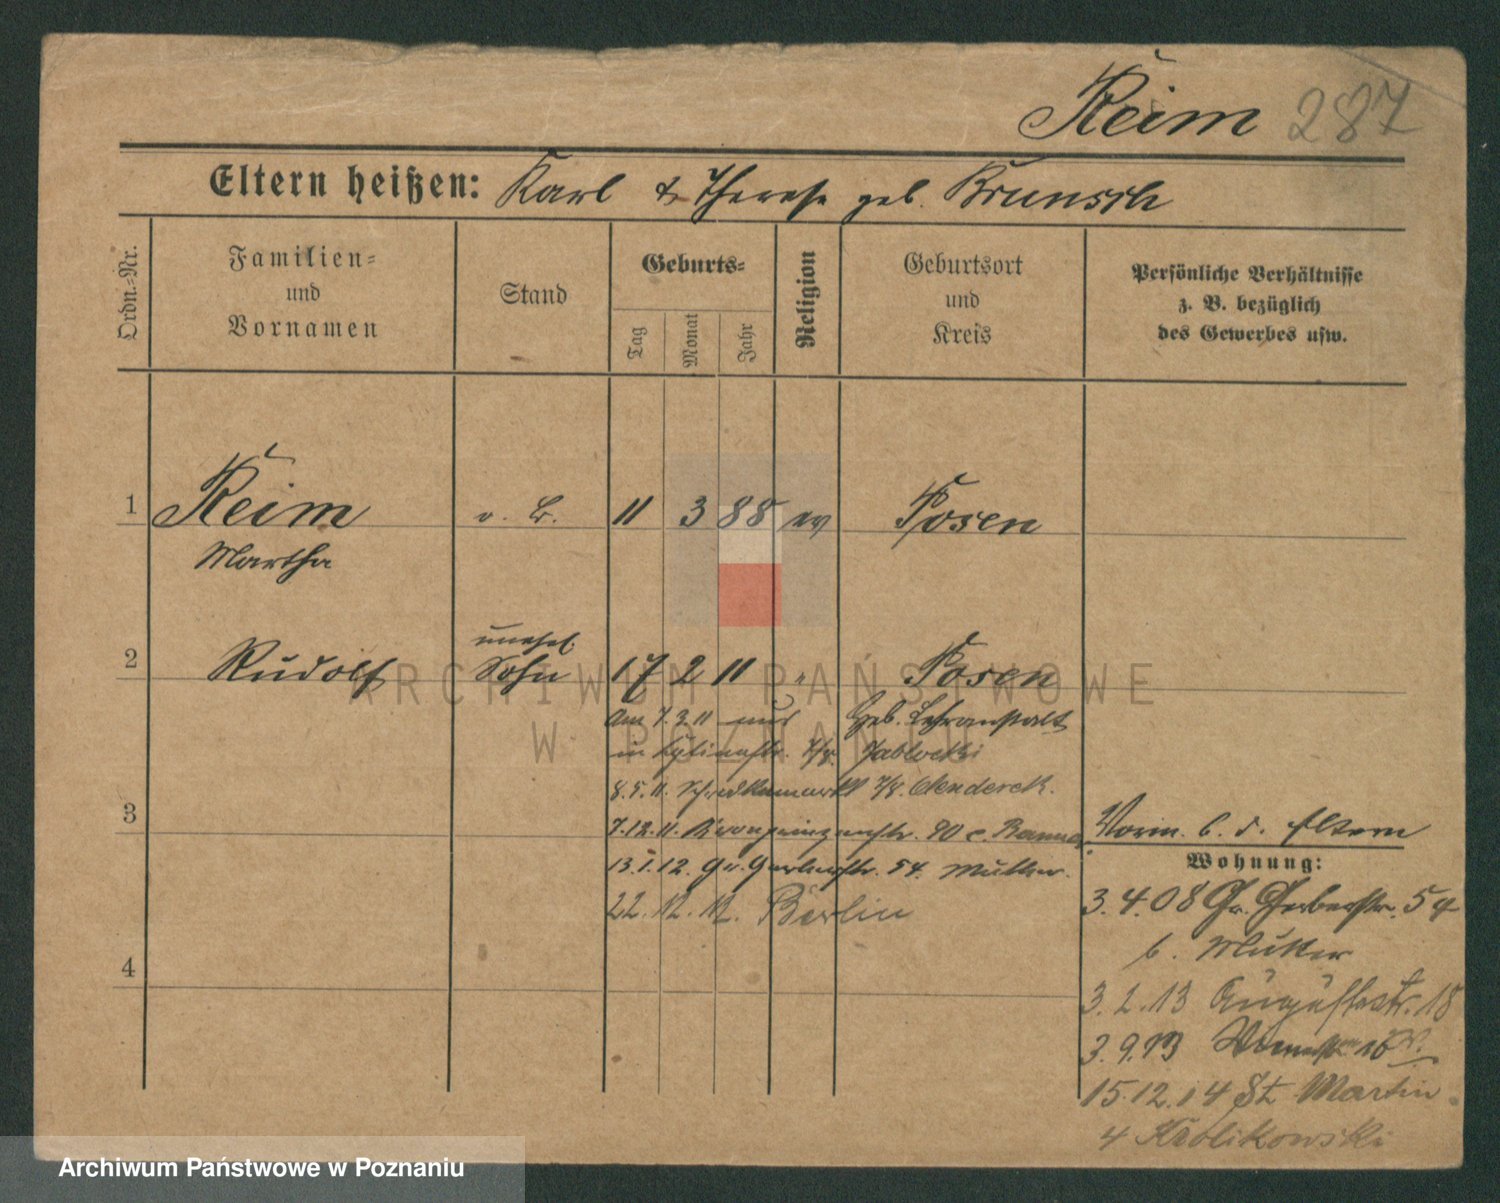 Reim 287
Eltern heißen: Karl & Therese geb. Brunsch
Ordn.-Nr.
Familien-
und
Vornamen
Stand
Geburts-
Tag
Monat
Jahr
Religion
Geburtsort
und
Kreis
Persönliche Verhältnisse
z. B. bezüglich
des Gewerbes usw.
1 Reim o. B. 11 3 88 ev Posen
Martha
unehel.
2 Rudolf Sohn 17 2 11 " Posen
ARCHIWUM PAŃSTWOWE
W POZNANIU
Am 7.3.11 aus Heb. Lehranstalt
in 7/8. Jablocki
8.5.11. 7/8.
3
7.12.11. Kronprinzenstr. 90 c.
13.1.12. Gr. Gerberstr. 54. Mutter.
22.12.12. Berlin
4
Vorm. b. d. Eltern
Wohnung:
3.4.08 Gr. Gerberstr. 54
b. Mutter
3.2.13 Augustastr. 18
3.9.13
15.12.14 St. Martin
4 Krolikowski
Archiwum Państwowe w Poznaniu